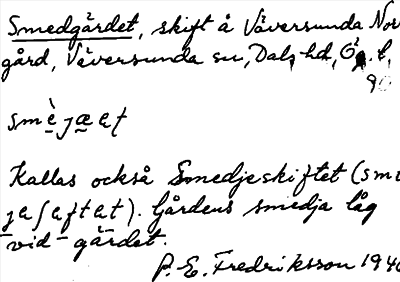 Smedgärdet, skift å Väversunda Nor
gård, Väversunda sn, Dals hd, Ög. l,
90
smèjæat
Kallas också Smedjeskiftet (smɛ
jaʃaftat). Gårdens smedja låg
vid gärdet.
P. E. Fredriksson 1940